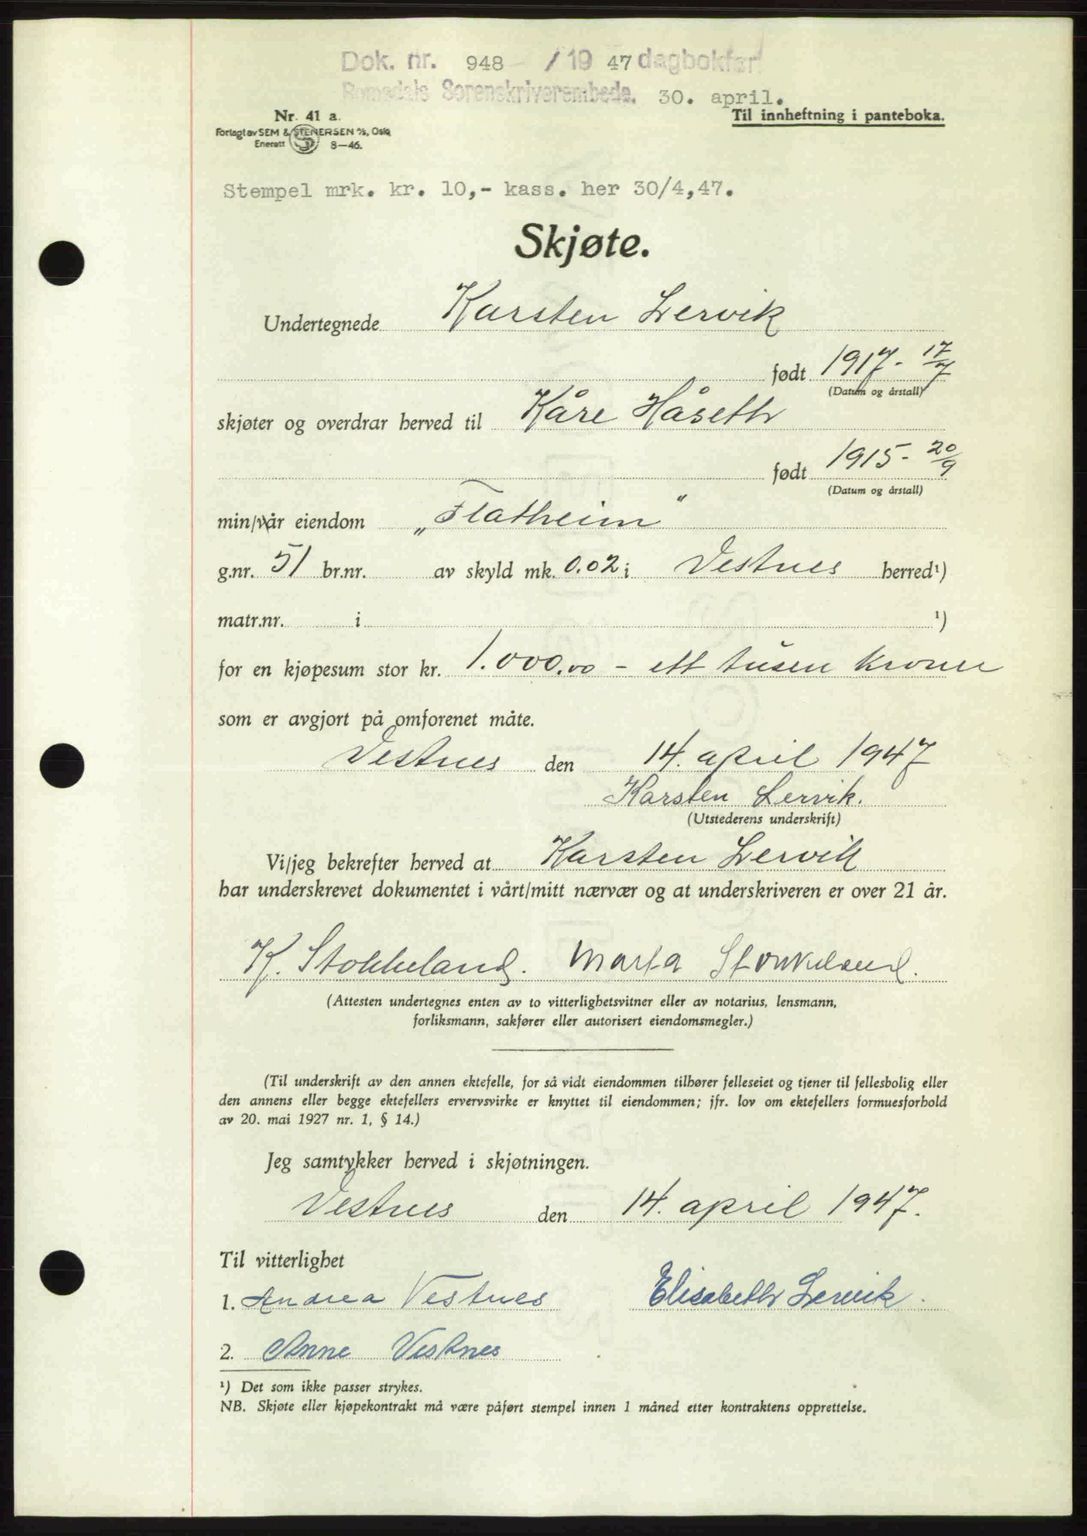 Dok. nr. 948 / 19 47 dagbokført
Romsdals Sorenskriverembede. 30. april.
Nr. 41 a.
Til innheftning i panteboka.
Forlagt av SEM & STENERSEN A/S, Oslo
Enerett 8-46.
Stempel mrk. kr. 10,- kass. her 30/4,47.
Skjøte.
Undertegnede Karsten Lervik
født 1917 - 17/7
(Datum og årstall)
skjøter og overdrar herved til Kåre Håseth
født 1915 - 20/9
(Datum og årstall)
min/vår eiendom „Flatheim"
g.nr. 51 br.nr. av skyld mk. 0.02 i Vestnes herred¹)
matr.nr. i ¹)
for en kjøpesum stor kr. 1.000.00 - ett tusen kroner
som er avgjort på omforenet måte.
Vestnes den 14. april 1947
Karsten Lervik.
(Utstederens underskrift)
Vi/jeg bekrefter herved at Karsten Lervik
har underskrevet dokumentet i vårt/mitt nærvær og at underskriveren er over 21 år.
K. Stokkeland. Marta Stokkeland.
(Attesten undertegnes enten av to vitterlighetsvitner eller av notarius, lensmann,
forliksmann, sakfører eller autorisert eiendomsmegler.)
(Til underskrift av den annen ektefelle, for så vidt eiendommen tilhører felleseiet og tjener til fellesbolig eller
den annens eller begge ektefellers ervervsvirke er knyttet til eiendommen; jfr. lov om ektefellers formuesforhold
av 20. mai 1927 nr. 1, § 14.)
Jeg samtykker herved i skjøtningen.
Vestnes den 14. april 1947.
Til vitterlighet
1. Andrea Vestnes Elisabeth Lervik.
2. Anne Vestnes
¹) Det som ikke passer strykes.
NB. Skjøte eller kjøpekontrakt må være påført stempel innen 1 måned etter kontraktens opprettelse.